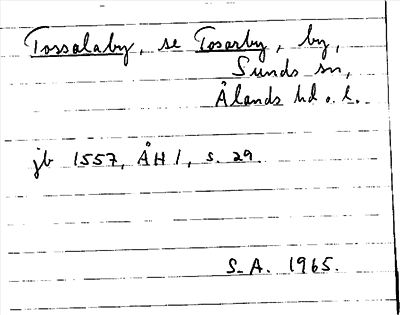 Tossalaby, se Tosarby, by,
Sunds sn,
Ålands hd o. l.
jb 1557, ÅH 1, s. 29.
S.A. 1965.